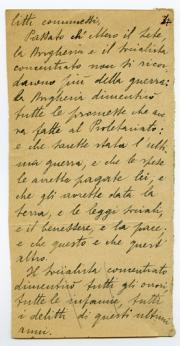 litti commessi,
Passato ch' ebbero il Lete,
la Borghesia e il socialista
concentrato non si ricor
darono più della guerra:
la Borghesia dimenticò
tutte le promesse che ave
va fatte al Proletariato:
e che sarebbe stata l' ulti
ma guerra, e che le spese
le avrebbe pagate lei, e
che gli avrebbe data la
terra, e le leggi sociali,
e il benessere, e la pace;
e che questo e che quest'
altro.
Il socialista concentrato
dimenticò tutti gli orrori
tutte le infamie, tutti
i delitti di questi ultimi
anni.